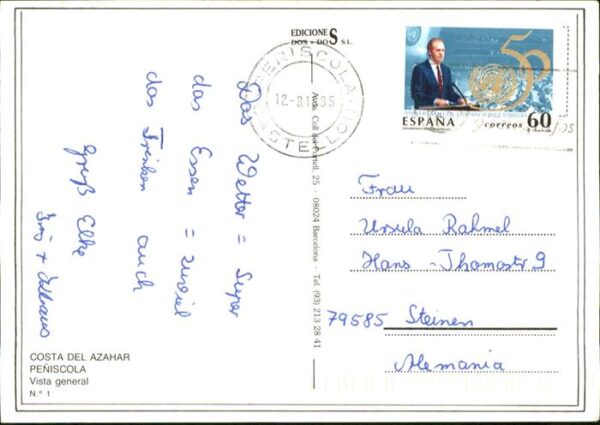 EDICIONES
DOS Y DOS S.L.
PEÑISCOLA
12-
CASTELLON
50
ESPAÑA
correos 60
Das Wetter = Super
das Essen = zuviel
das Trinken auch
Gruß Elke
Avda. Coll del Portell, 25 - 08024 Barcelona - Tel. (93) 213 28 41
Frau
Ursula Rahmel
Hans-Thomastr 9
79585 Steinen
Alemania
COSTA DEL AZAHAR
PEÑISCOLA
Vista general
N.º 1